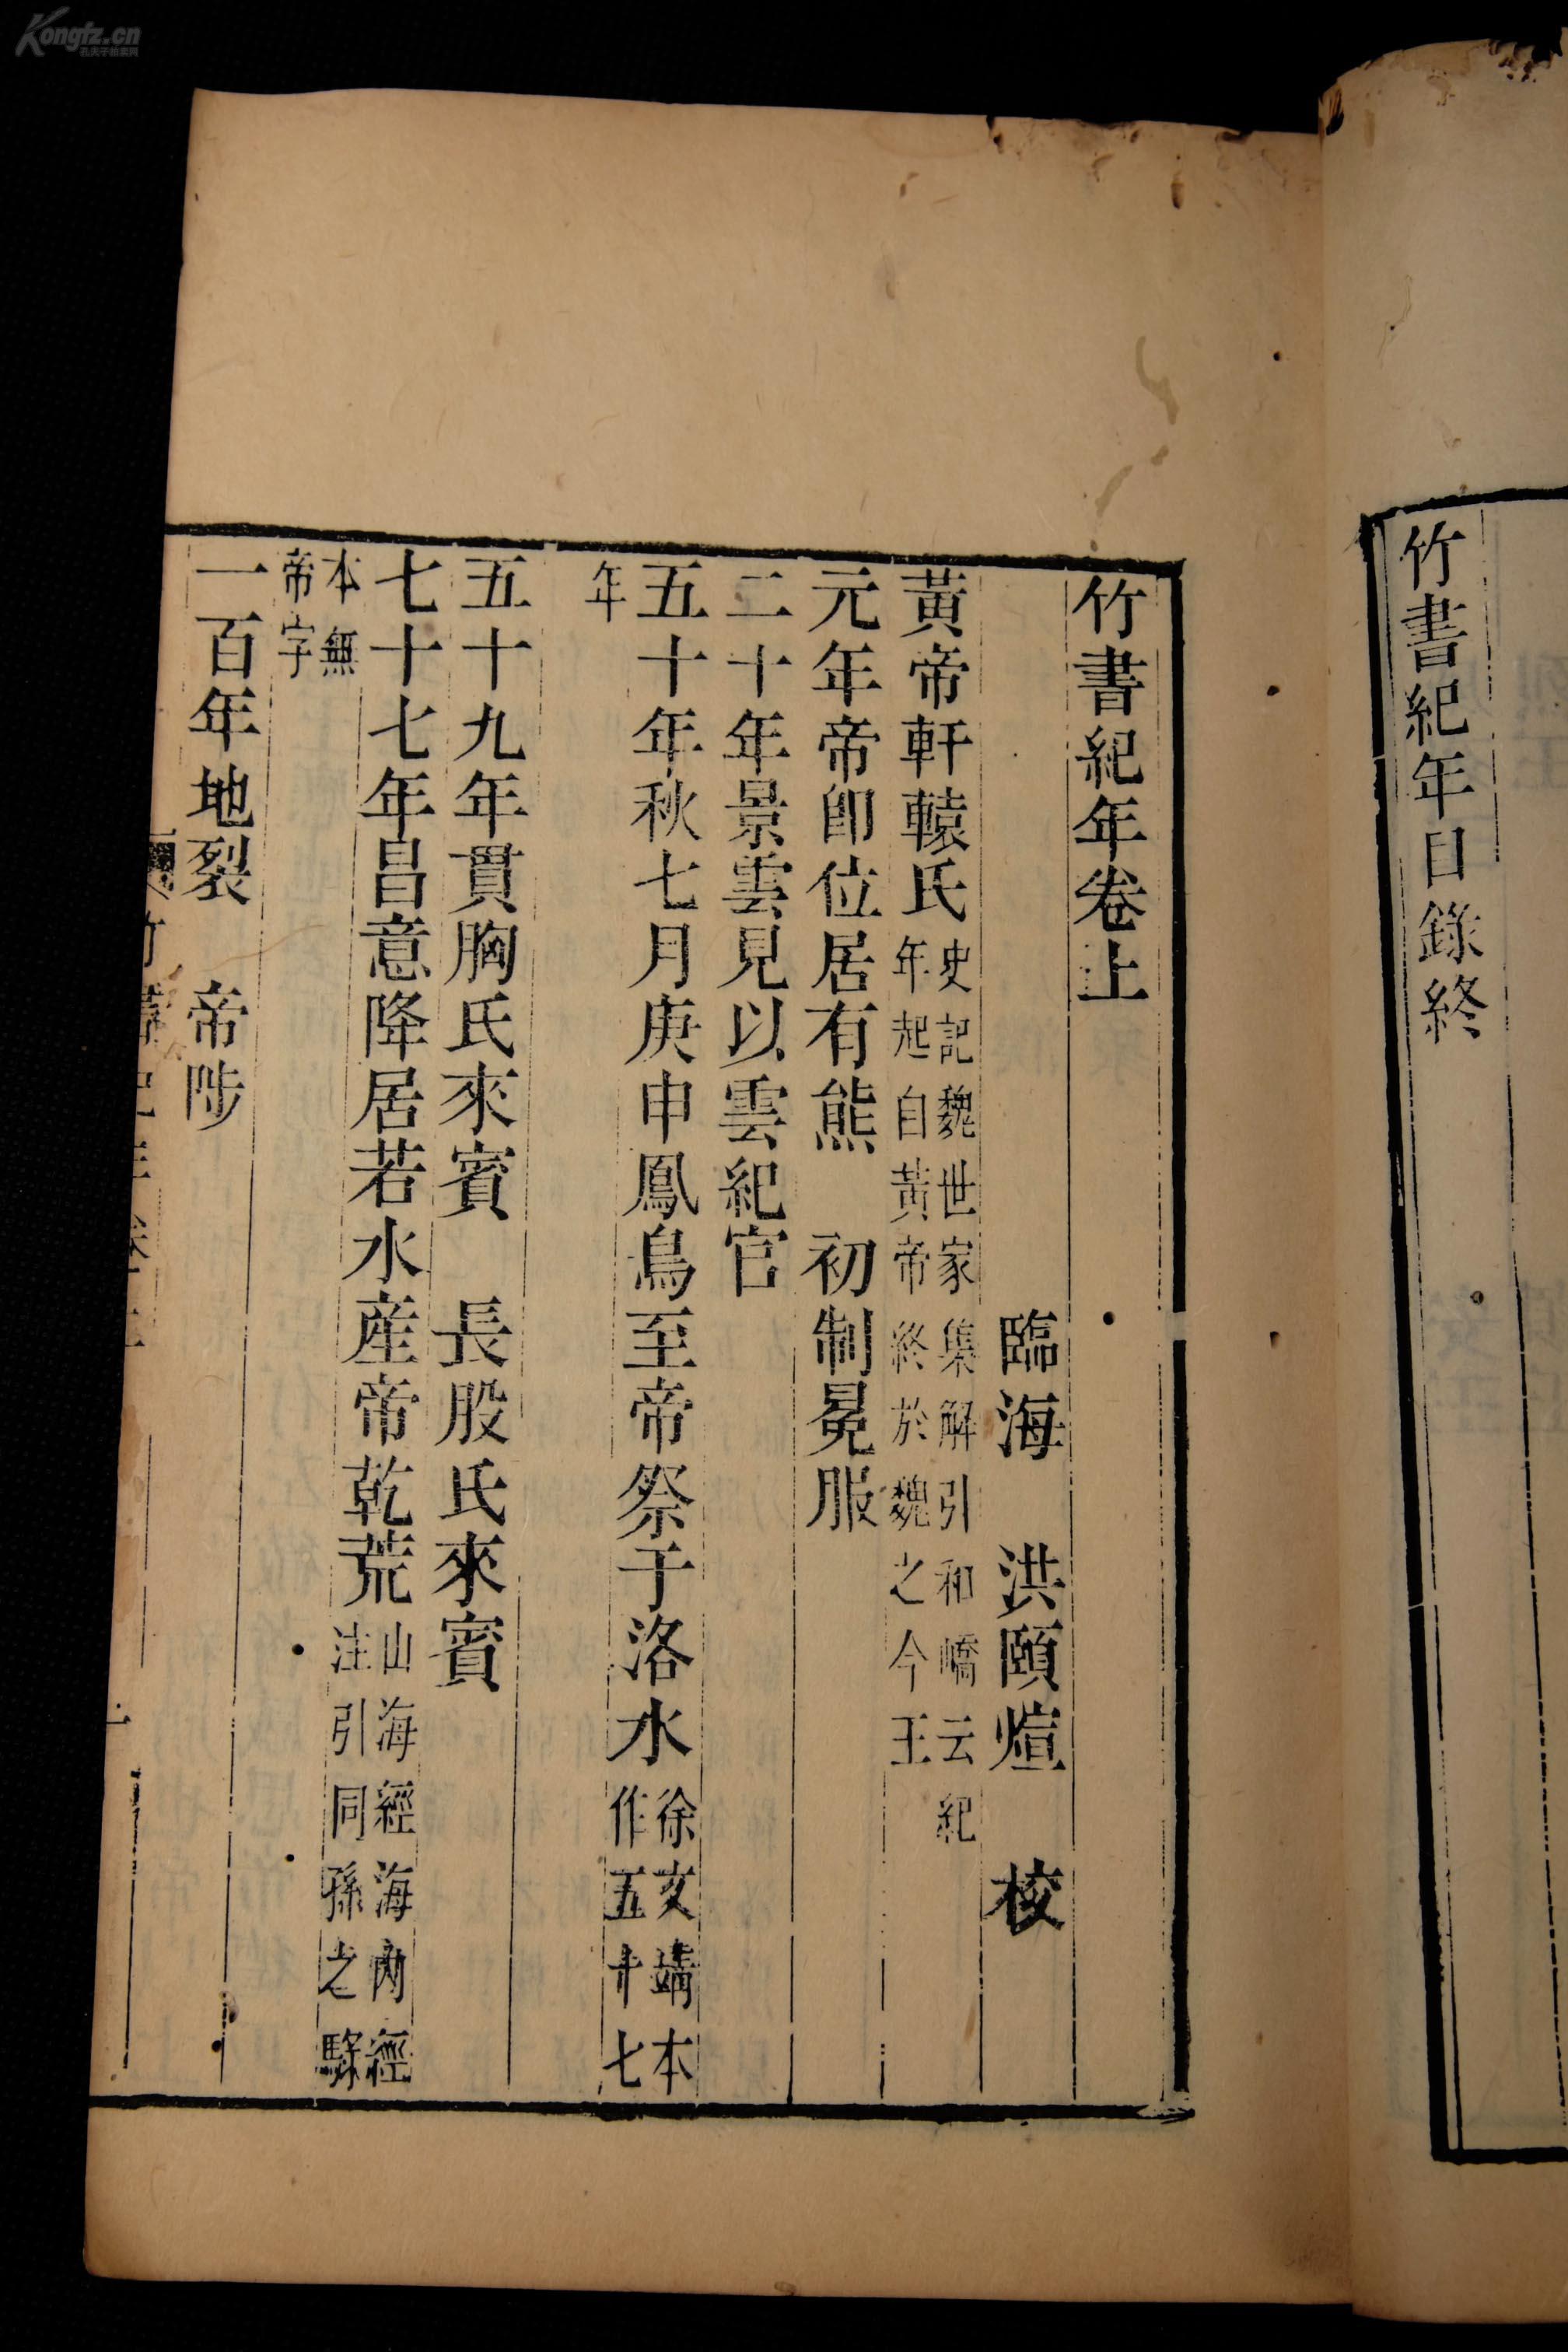 Kongfz.cn
孔夫子拍卖网
竹書紀年目錄終
竹書紀年卷上
臨海 洪頤煊 校
黃帝軒轅氏史記魏世家集解引和嶠云紀
年起自黃帝終於魏之今王
元年帝即位居有熊 初制冕服
二十年景雲見以雲紀官
五十年秋七月庚申鳳鳥至帝祭于洛水徐文靖本
作五十七
年
五十九年貫胸氏來賓 長股氏來賓
七十七年昌意降居若水產帝乾荒山海經海內經
注引同孫之騄
本無
帝字
一百年地裂 帝陟